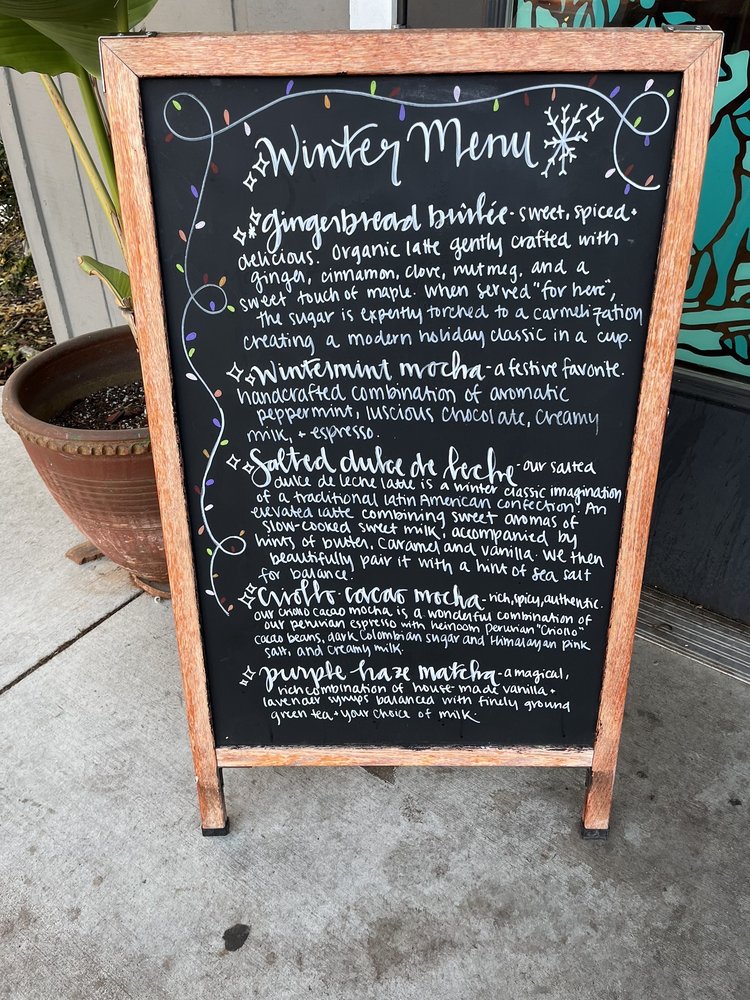 Winter Menu
gingerbread brûlée - sweet, spiced +
delicious. Organic latte gently crafted with
ginger, cinnamon, clove, nutmeg, and a
sweet touch of maple. When served "for here",
the sugar is expertly torched to a carmelization
creating a modern holiday classic in a cup.
wintermint mocha - a festive favorite.
handcrafted combination of aromatic
peppermint, luscious chocolate, creamy
milk, + espresso.
Salted dulce de leche - our salted
dulce de leche latte is a winter classic imagination
of a traditional latin American confection. An
elevated latte combining sweet aromas of
slow-cooked sweet milk, accompanied by
hints of butter, caramel and vanilla. We then
beautifully pair it with a hint of sea salt
for balance.
Criollo cacao mocha - rich, spicy, authentic.
our criollo cacao mocha is a wonderful combination of
our peruvian espresso with heirloom Peruvian "Criollo"
cacao beans, dark Colombian sugar and Himalayan pink
salt, and creamy milk.
purple haze matcha - a magical,
rich combination of house-made vanilla +
lavender syrups balanced with finely ground
green tea + your choice of milk.